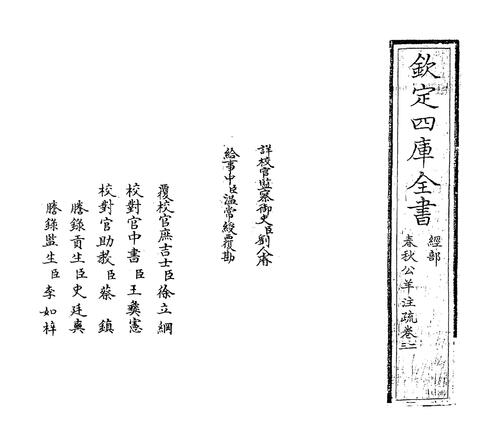 欽定四庫全書
經部
春秋公羊注疏卷二三
詳校官監察御史臣劉人睿
給事中臣溫常綬覆勘
覆校官庶吉士臣徐立綱
校對官中書臣王彝憲
校對官助教臣蔡鎮
謄錄貢生臣史廷奭
謄錄監生臣李如梓